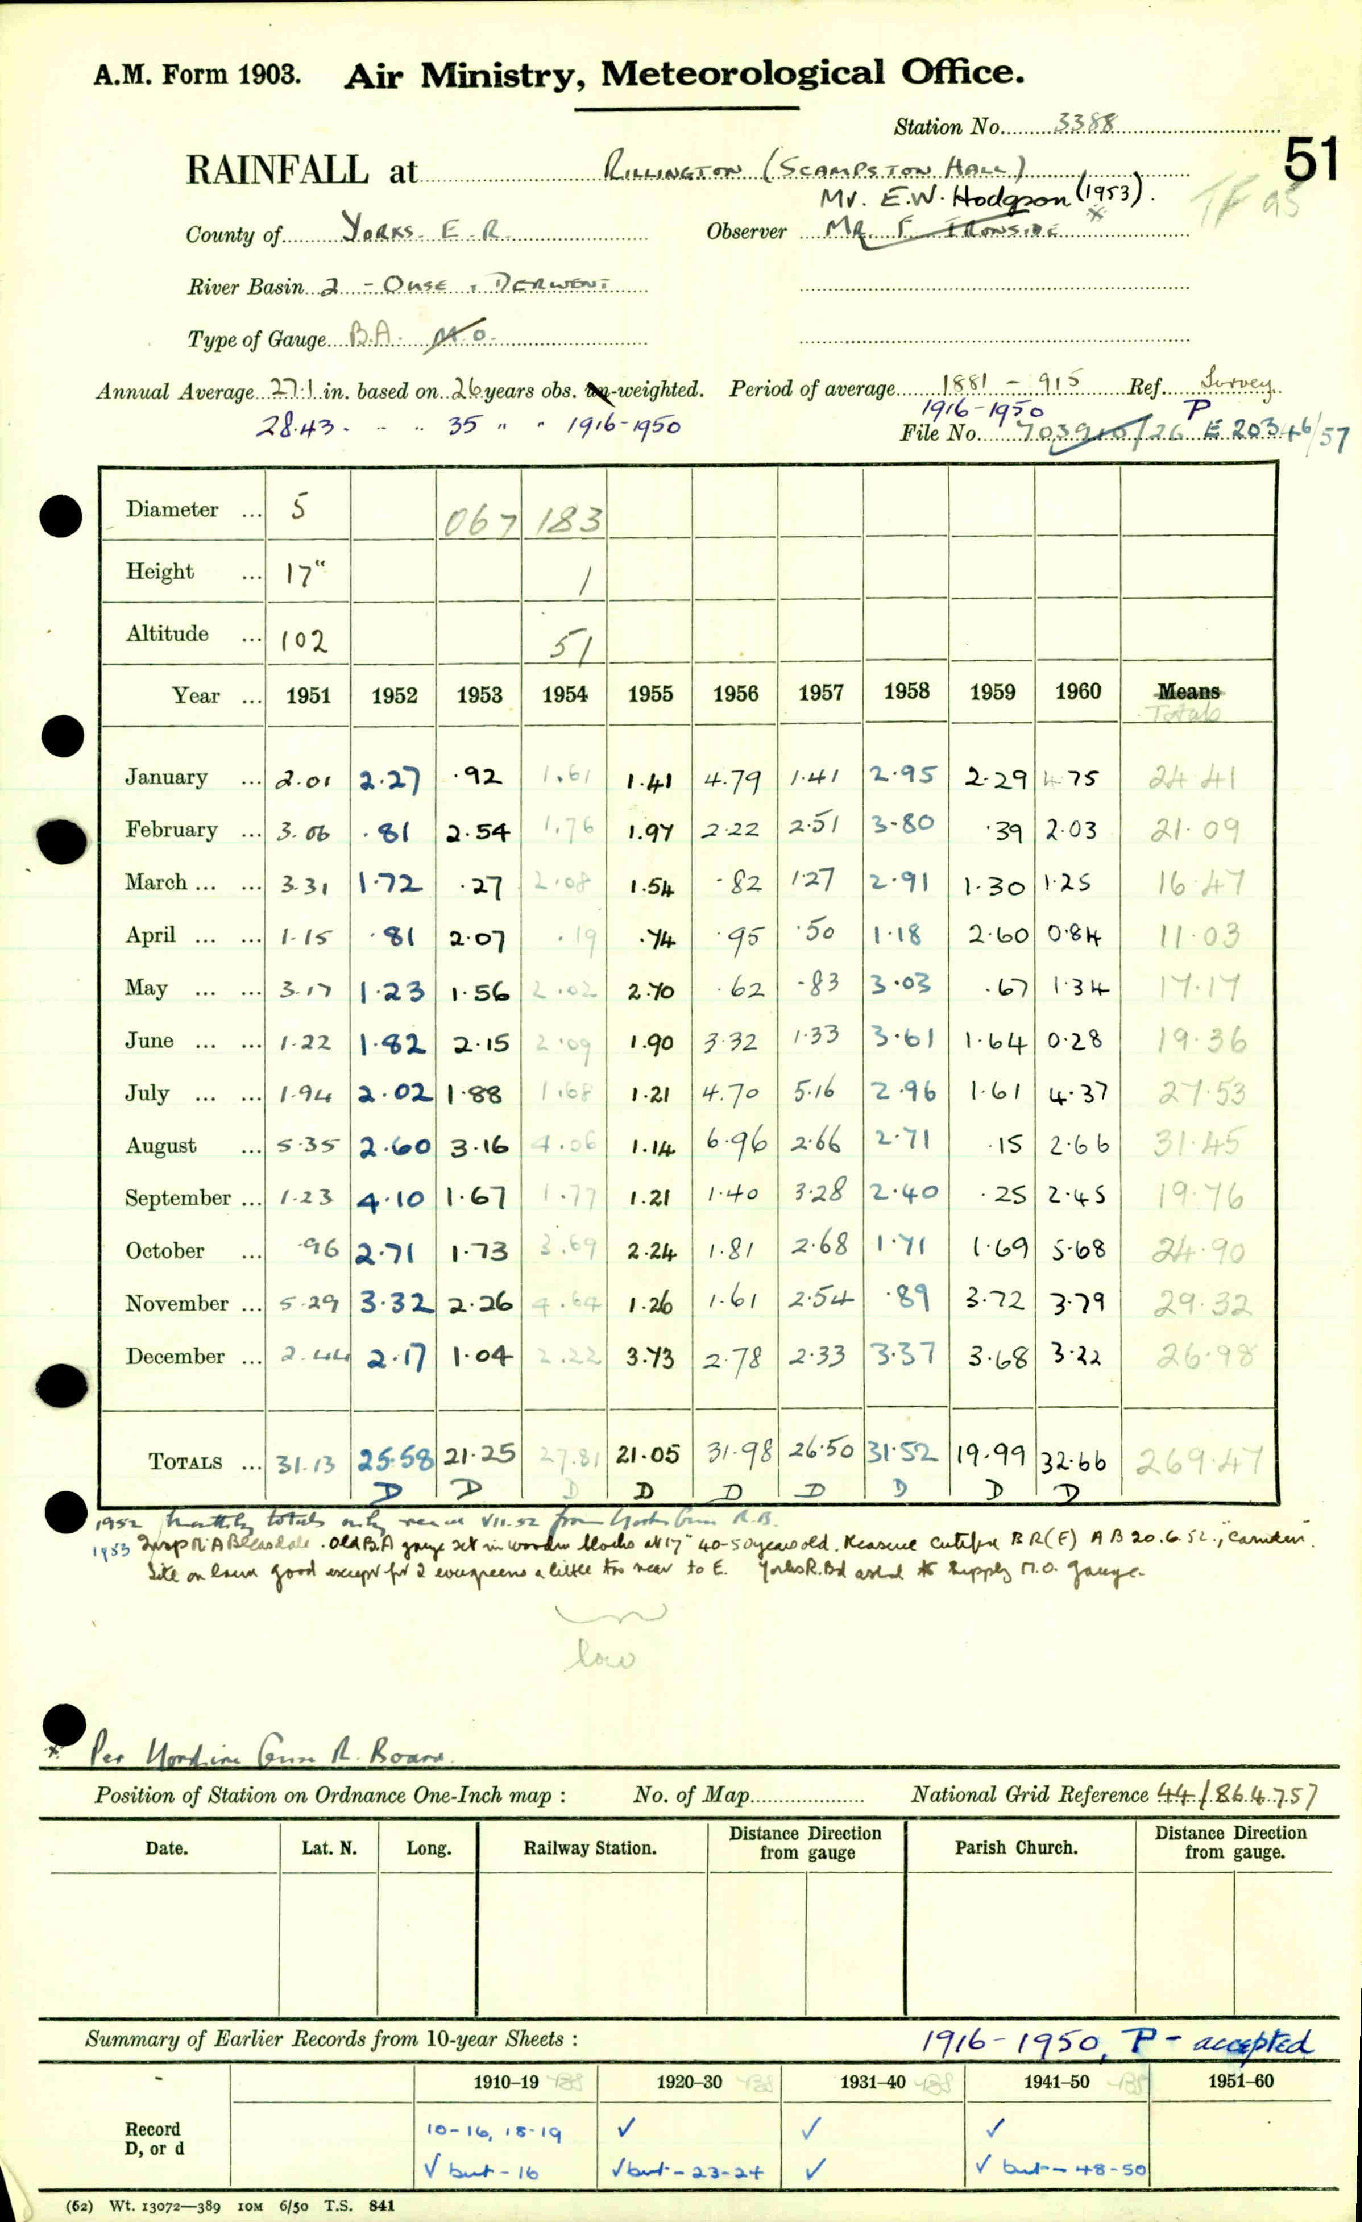 A.M. Form 1903. Air Ministry, Meteorological Office.
Station No. 3388
51
RAINFALL at RILLINGTON (SCAMPSTON HALL)
TF 95
Mr. E.W. Hodgson (1953).
County of YORKS. E. R. Observer MR. F. IRONSIDE *
River Basin 2 - OUSE, DERWENT
Type of Gauge B.A. M.O.
Annual Average 27.1 in. based on 26 years obs. un-weighted. Period of average 1881 - 915 Ref. Survey
28.43 - - - 35 " " 1916-1950 1916-1950 P
File No. 703910/26 E 20346/57
Diameter ... 5 067 183
Height ... 17" 1
Altitude ... 102 51
Year ... 1951 1952 1953 1954 1955 1956 1957 1958 1959 1960 Means
Totals
January ... 2.01 2.27 .92 1.61 1.41 4.79 1.41 2.95 2.29 4.75 24.41
February ... 3.06 .81 2.54 1.76 1.97 2.22 2.51 3.80 .39 2.03 21.09
March ... ... 3.31 1.72 .27 2.08 1.54 .82 1.27 2.91 1.30 1.25 16.47
April ... ... 1.15 .81 2.07 .19 .74 .95 .50 1.18 2.60 0.84 11.03
May ... ... 3.17 1.23 1.56 2.02 2.70 .62 .83 3.03 .67 1.34 17.17
June ... ... 1.22 1.82 2.15 2.09 1.90 3.32 1.33 3.61 1.64 0.28 19.36
July ... ... 1.94 2.02 1.88 1.68 1.21 4.70 5.16 2.96 1.61 4.37 27.53
August ... 5.35 2.60 3.16 4.06 1.14 6.96 2.66 2.71 .15 2.66 31.45
September ... 1.23 4.10 1.67 1.77 1.21 1.40 3.28 2.40 .25 2.45 19.76
October ... .96 2.71 1.73 3.69 2.24 1.81 2.68 1.71 1.69 5.68 24.90
November ... 5.29 3.32 2.26 4.64 1.26 1.61 2.54 .89 3.72 3.79 29.32
December ... 2.44 2.17 1.04 2.22 3.73 2.78 2.33 3.37 3.68 3.22 26.98
TOTALS ... 31.13 25.58 21.25 27.81 21.05 31.98 26.50 31.52 19.99 32.66 269.47
D D D D D D D D D
1952 Monthly totals only VII.52 from R.B.
1953 Insp R. A Bleasdale. Old B.A gauge set in wooden blocks at 17" 40-50 years old. Measure B R (F) A B 20.6.52., "Camden".
Site on lawn good except for 2 evergreens a little too near to E. Yorks R. Bd asked to supply M.O. gauge.
low
* Per R. Board.
Position of Station on Ordnance One-Inch map : No. of Map National Grid Reference 44/864757
Date. Lat. N. Long. Railway Station. Distance Direction from gauge Parish Church. Distance Direction from gauge.
Summary of Earlier Records from 10-year Sheets : 1916-1950, P - accepted
1910–19 1920–30 1931–40 1941–50 1951–60
Record 10-16, 18-19 ✓ ✓ ✓
D, or d ✓ but - 16 ✓ but - 23-24 ✓ ✓ but - 48-50
(62) Wt. 13072—389 10M 6/50 T.S. 841